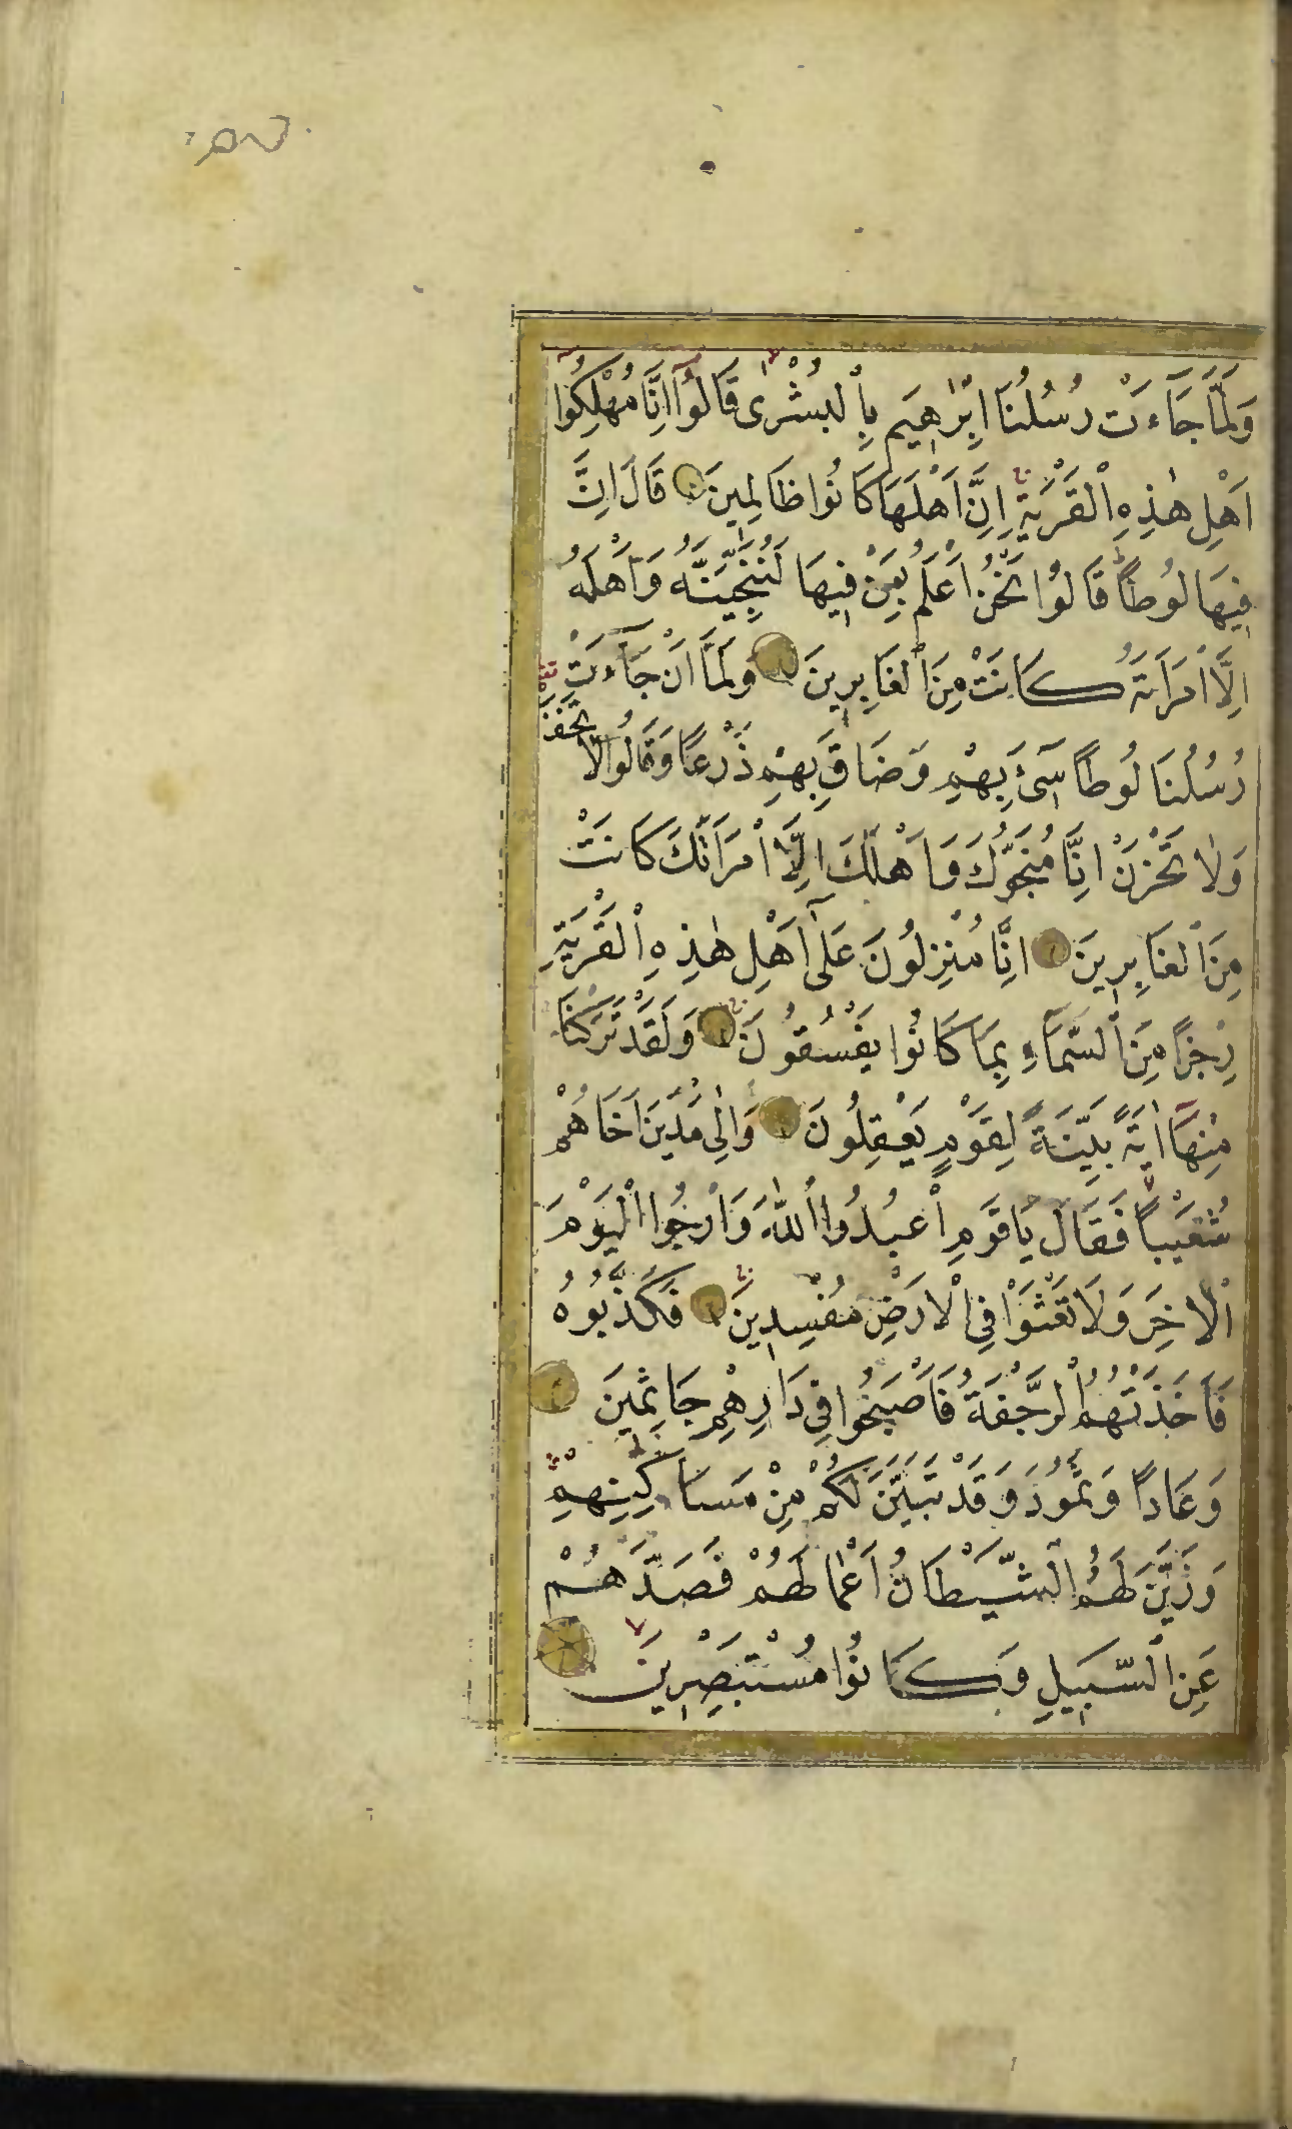 وَلَمَّا جَاءَتْ رُسُلُنَا اِبْرٰهِيمَ بِالْبُشْرٰى قَالُوا اِنَّا مُهْلِكُوا
اَهْلِ هٰذِهِ الْقَرْيَةِ اِنَّ اَهْلَهَا كَانُوا ظَالِمِينَ قَالَ اِنَّ
فِيهَا لُوطًا قَالُوا نَحْنُ اَعْلَمُ بِمَنْ فِيهَا لَنُنَجِّيَنَّهُ وَاَهْلَهُ
اِلَّا امْرَاَتَهُ كَانَتْ مِنَ الْغَابِرِينَ وَلَمَّا اَنْ جَاءَتْ
رُسُلُنَا لُوطًا سِيءَ بِهِمْ وَضَاقَ بِهِمْ ذَرْعًا وَقَالُوا لَا تَخَفْ
وَلَا تَحْزَنْ اِنَّا مُنَجُّوكَ وَاَهْلَكَ اِلَّا امْرَاَتَكَ كَانَتْ
مِنَ الْغَابِرِينَ اِنَّا مُنْزِلُونَ عَلٰى اَهْلِ هٰذِهِ الْقَرْيَةِ
رِجْزًا مِنَ السَّمَاءِ بِمَا كَانُوا يَفْسُقُونَ وَلَقَدْ تَرَكْنَا
مِنْهَا اٰيَةً بَيِّنَةً لِقَوْمٍ يَعْقِلُونَ وَاِلٰى مَدْيَنَ اَخَاهُمْ
شُعَيْبًا فَقَالَ يَاقَوْمِ اعْبُدُوا اللّٰهَ وَارْجُوا الْيَوْمَ
الْاٰخِرَ وَلَا تَعْثَوْا فِي الْاَرْضِ مُفْسِدِينَ فَكَذَّبُوهُ
فَاَخَذَتْهُمُ الرَّجْفَةُ فَاَصْبَحُوا فِي دَارِهِمْ جَاثِمِينَ
وَعَادًا وَثَمُودَ وَقَدْ تَبَيَّنَ لَكُمْ مِنْ مَسَاكِنِهِمْ
وَزَيَّنَ لَهُمُ الشَّيْطَانُ اَعْمَالَهُمْ فَصَدَّهُمْ
عَنِ السَّبِيلِ وَكَانُوا مُسْتَبْصِرِينَ